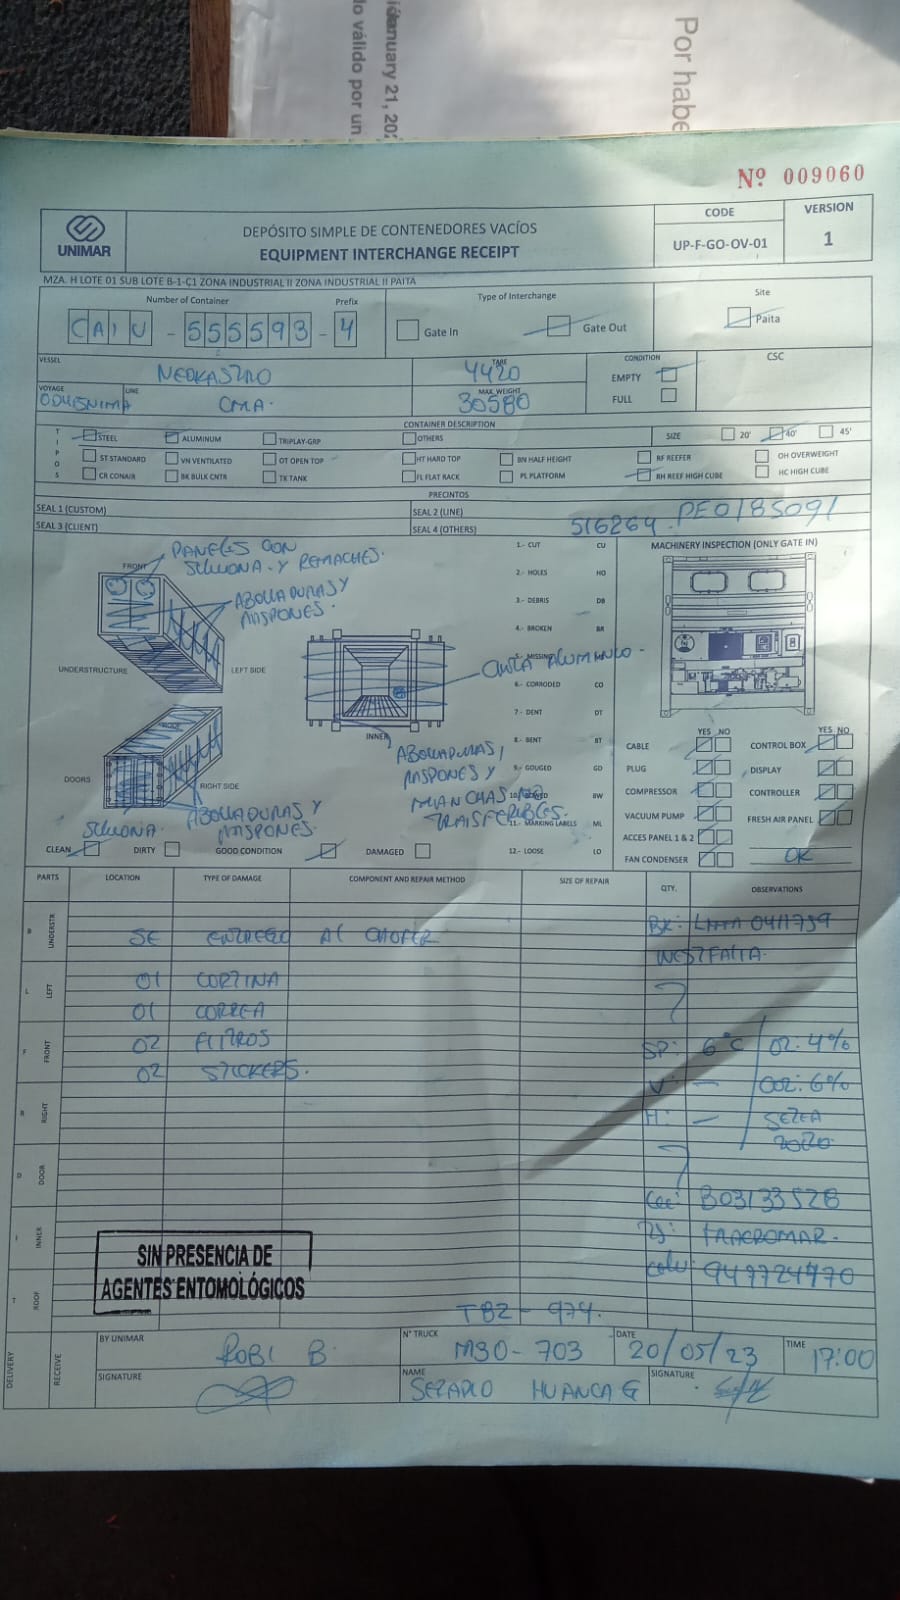 January 21, 202
lo válido por un
Por habe
Nº 009060
UNIMAR
DEPÓSITO SIMPLE DE CONTENEDORES VACÍOS
EQUIPMENT INTERCHANGE RECEIPT
CODE
UP-F-GO-OV-01
VERSION
1
MZA. H LOTE 01 SUB LOTE B-1-C1 ZONA INDUSTRIAL II ZONA INDUSTRIAL II PAITA
Number of Container Prefix
CAIU - 555593 - 4
Type of Interchange
Gate In Gate Out
Site
Paita
VESSEL
TARE 4420
CONDITION
EMPTY
FULL
CSC
VOYAGE
LINE CMA.
MAX. WEIGHT 30580
CONTAINER DESCRIPTION
TIPOS
STEEL ALUMINUM TRIPLAY-GRP OTHERS SIZE 20' 40' 45'
ST STANDARD VN VENTILATED OT OPEN TOP HT HARD TOP BN HALF HEIGHT RF REEFER OH OVERWEIGHT
CR CONAIR BK BULK CNTR TK TANK FL FLAT RACK PL PLATFORM RH REEF HIGH CUBE HC HIGH CUBE
PRECINTOS
SEAL 1 (CUSTOM) SEAL 2 (LINE)
SEAL 3 (CLIENT) SEAL 4 (OTHERS) 516264 PE0185091
FRONT
PANELES CON
SILICONA Y REMACHES.
ABOLLADURAS Y
RASPONES.
UNDERSTRUCTURE LEFT SIDE
ROOF
DOORS RIGHT SIDE
SILICONA.
ABOLLADURAS Y
RASPONES.
INNER
ALUMINIO
ABOLLADURAS,
RASPONES Y
MANCHAS NO
TRANSFERIBLES.
1.- CUT CU
2.- HOLES HO
3.- DEBRIS DB
4.- BROKEN BR
5.- MISSING
6.- CORRODED CO
7.- DENT DT
8.- BENT BT
9.- GOUGED GD
10.- BOWED BW
11.- MARKING LABELS ML
12.- LOOSE LO
MACHINERY INSPECTION (ONLY GATE IN)
YES NO YES NO
CABLE CONTROL BOX
PLUG DISPLAY
COMPRESSOR CONTROLLER
VACUUM PUMP FRESH AIR PANEL
ACCES PANEL 1 & 2
FAN CONDENSER OK
CLEAN DIRTY GOOD CONDITION DAMAGED
PARTS LOCATION TYPE OF DAMAGE COMPONENT AND REPAIR METHOD SIZE OF REPAIR QTY. OBSERVATIONS
UNDERSTR
LEFT
FRONT
RIGHT
DOOR
INNER
ROOF
SE ENTREGO AL CHOFER
01 CORTINA
01 CORREA
02 FILTROS
02 STICKERS.
BK: LMM0411759
WESTFALIA.
SP: 6°C / O2: 4%
V: — CO2: 6%
H: —
2020
B03133528
TRACROMAR.
949724770
SIN PRESENCIA DE
AGENTES ENTOMOLÓGICOS
TBZ - 974.
DELIVERY
RECEIVE
BY UNIMAR ROBI B.
N° TRUCK M3O-703
DATE 20/05/23
TIME 17:00
SIGNATURE
NAME HUANCA G
SIGNATURE